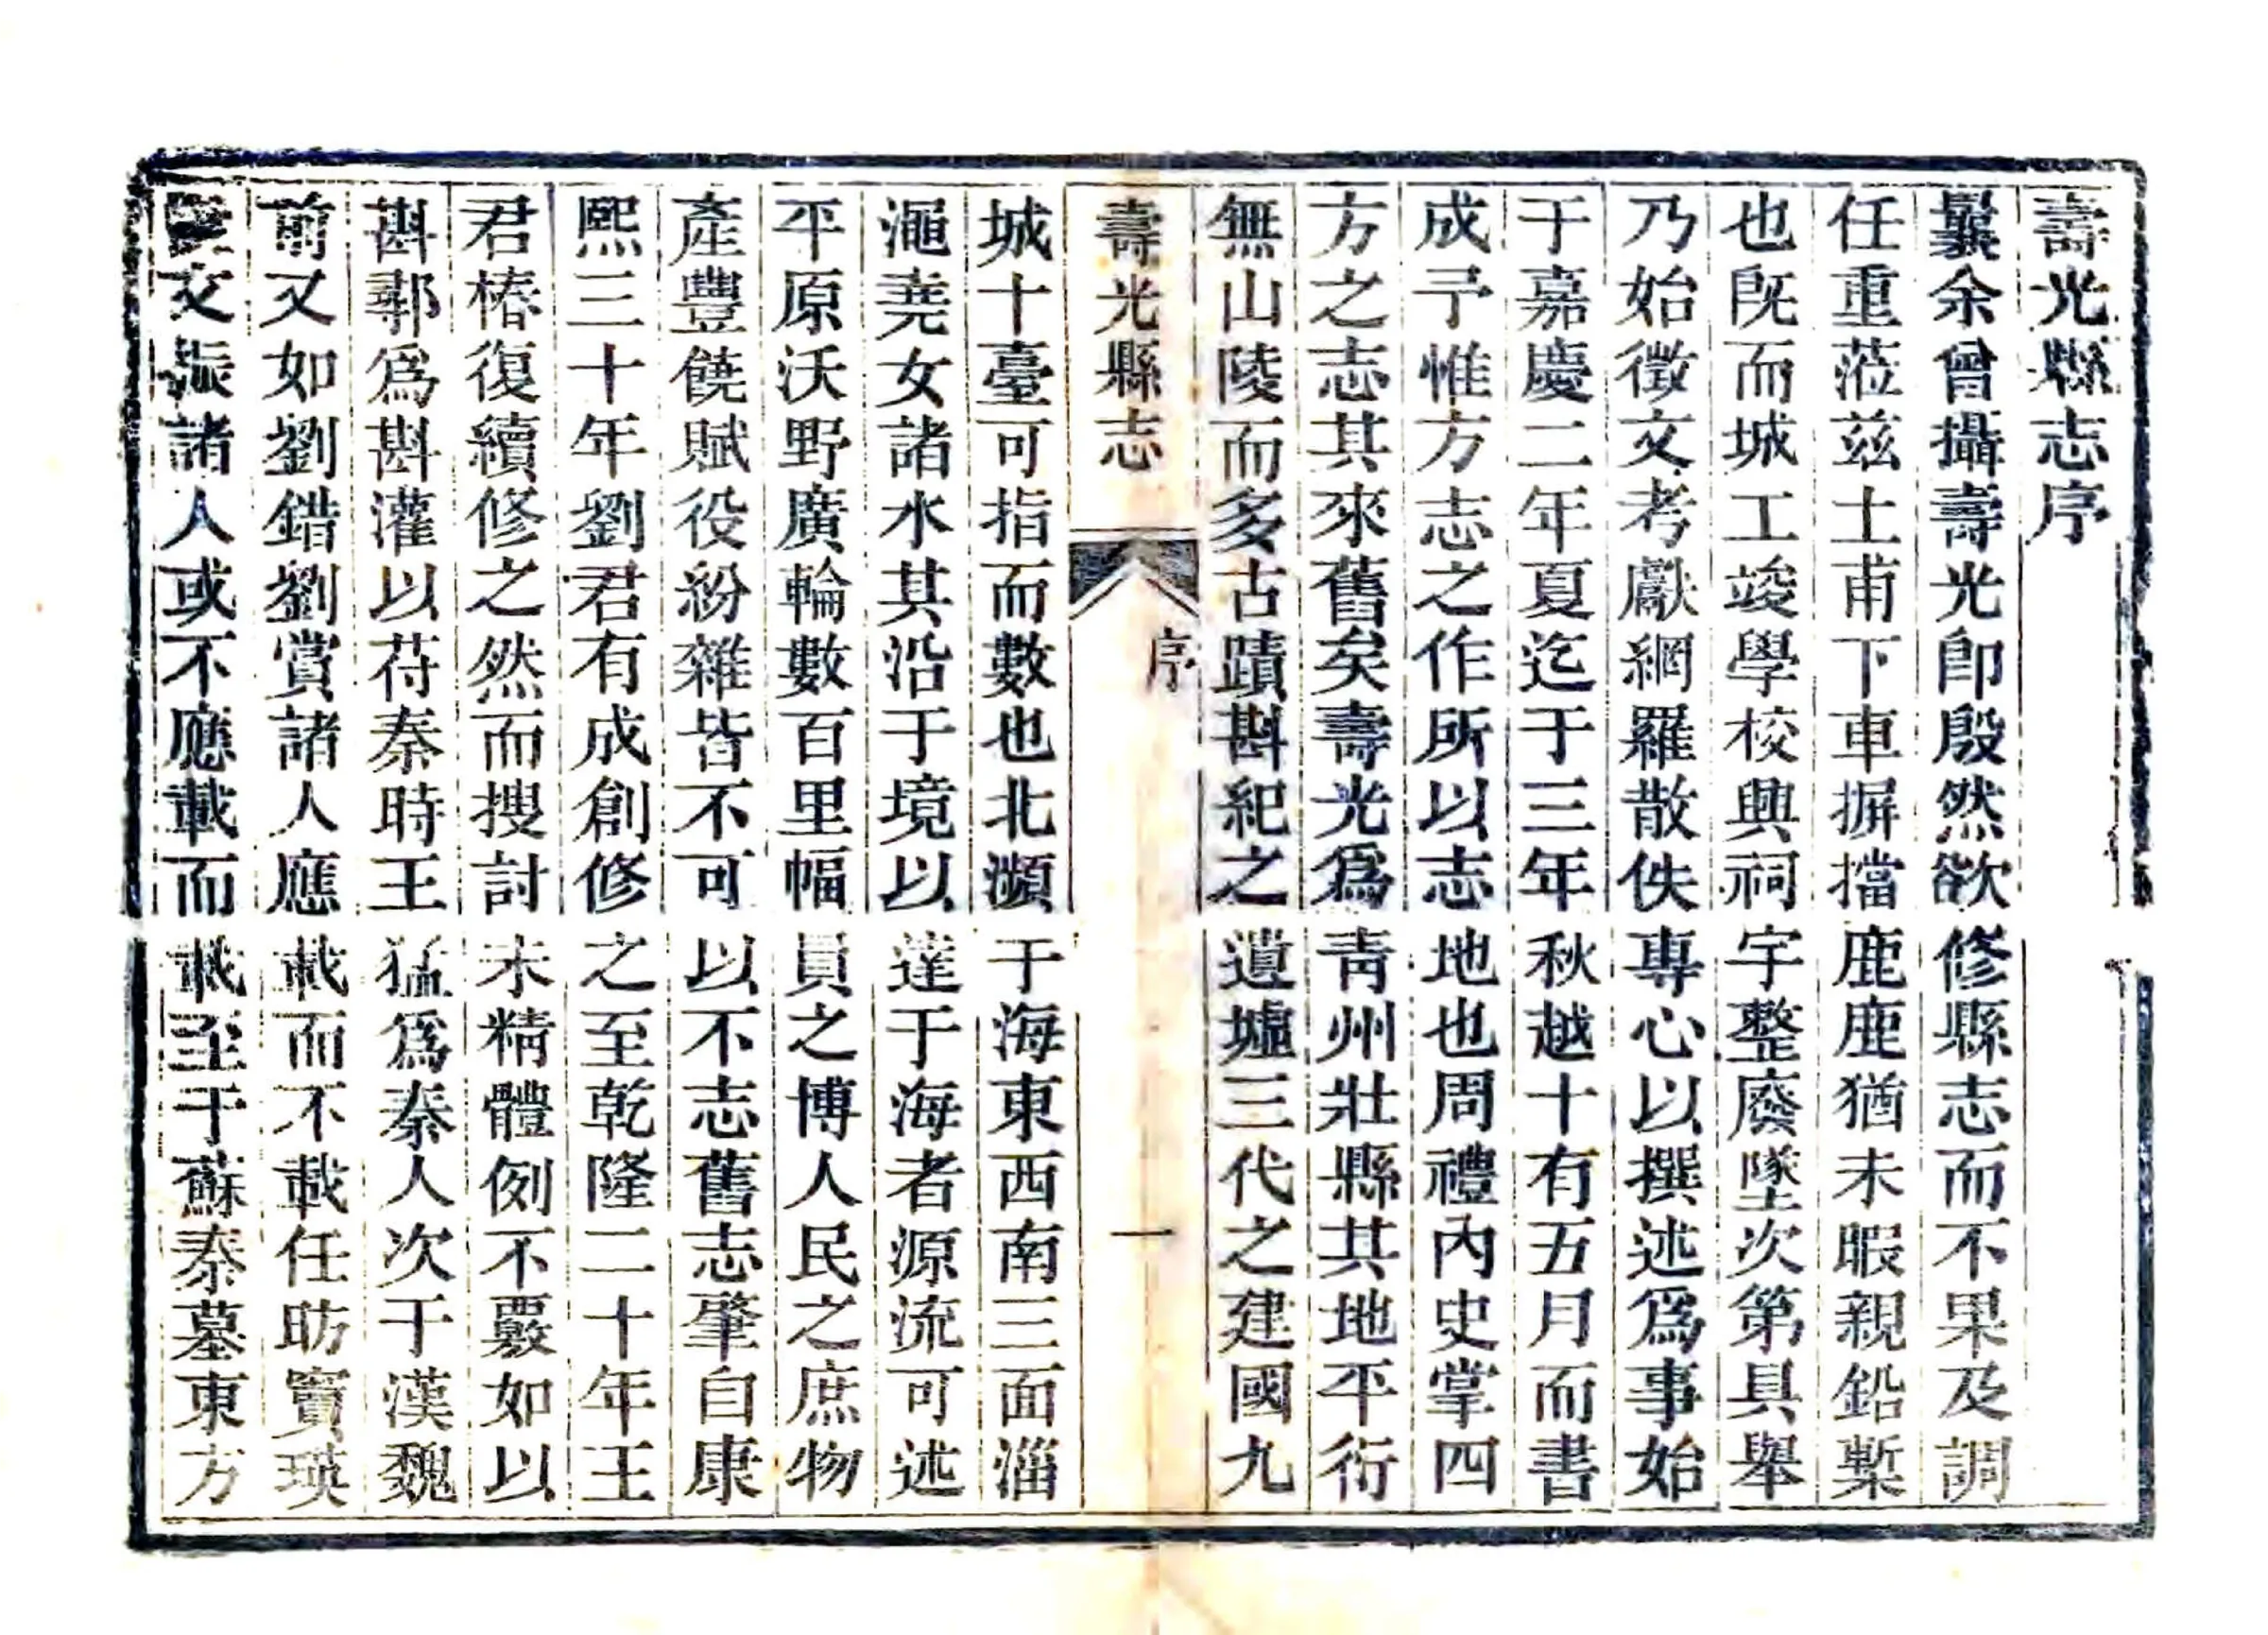 壽光縣志序
曩余曾攝壽光卽殷然欲修縣志而不果及調
任重蒞茲土甫下車摒擋鹿鹿猶未暇親鉛槧
也旣而城工竣學校興祠宇整廢墜次第具舉
乃始徵文考獻網羅散佚專心以撰述爲事始
于嘉慶二年夏迄于三年秋越十有五月而書
成予惟方志之作所以志地也周禮內史掌四
方之志其來舊矣壽光爲靑州壯縣其地平衍
無山陵而多古蹟斟紀之遺墟三代之建國九
壽光縣志 序 一
城十臺可指而數也北瀕于海東西南三面淄
澠堯女諸水其沿于境以達于海者源流可述
平原沃野廣輪數百里幅員之博人民之庶物
產豐饒賦役紛雜皆不可以不志舊志肇自康
熙三十年劉君有成創修之至乾隆二十年王
君椿復續修之然而搜討未精體例不覈如以
斟鄩爲斟灌以苻秦時王猛爲秦人次于漢魏
前又如劉錯劉賞諸人應載而不載任昉竇瑛
文振諸人或不應載而載至于蘇秦墓東方